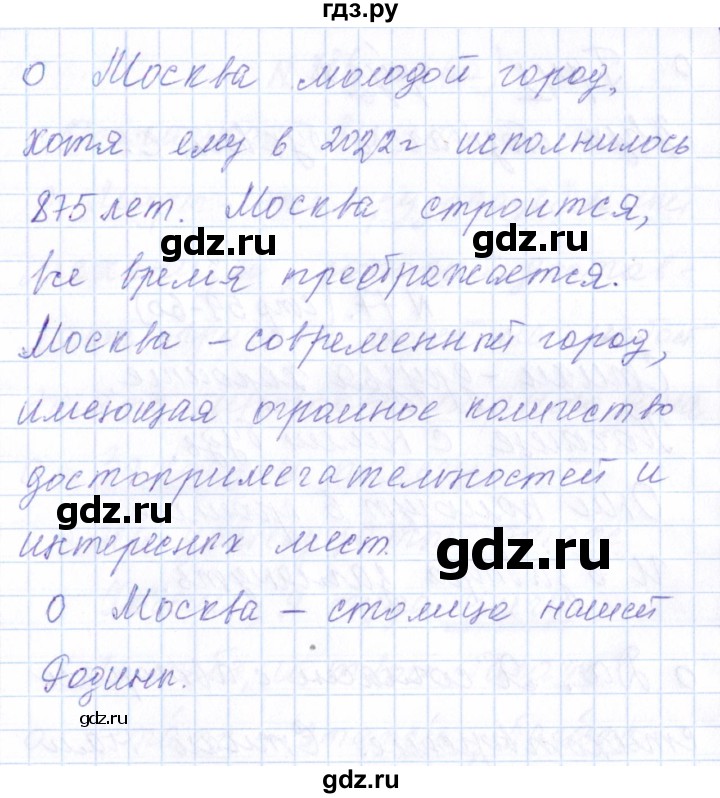 гдз.ру
о Москва молодой город,
хотя ему в 2022г исполнилось
875 лет. Москва строится,
gdz.ru gdz.ru
все время преображается.
Москва – современный город,
имеющая огромное количество
достопримечательностей и
gdz.ru
интересных мест.
gdz.ru
о Москва – столица нашей
Родины.
gdz.ru
gdz.ru